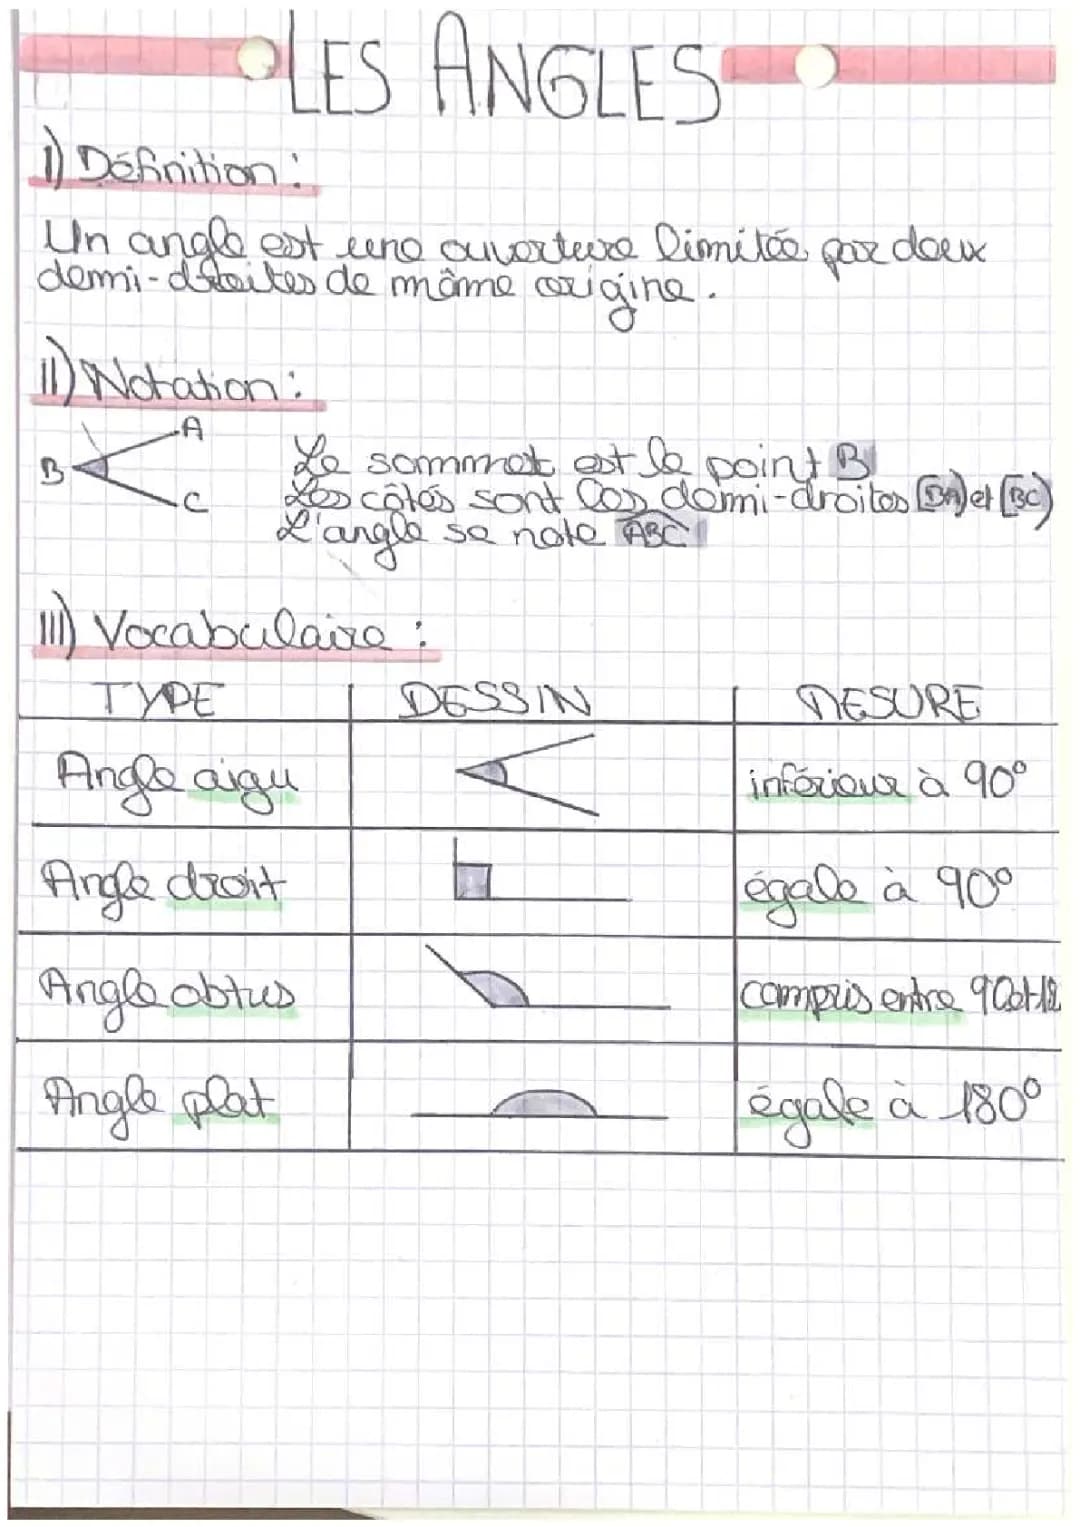 LES ANGLES
I) Définition :
Un angle est une ouverture limitée par deux
demi-droites de même origine.
II) Notation :
A
B
C
Le sommet est le point B
Les côtés sont les demi-droites [BA) et [BC)
L'angle se note ABC
III) Vocabulaire :
TYPE DESSIN MESURE
Angle aigu inférieur à 90°
Angle droit égale à 90°
Angle obtus compris entre 90et18
Angle plat égale à 180°